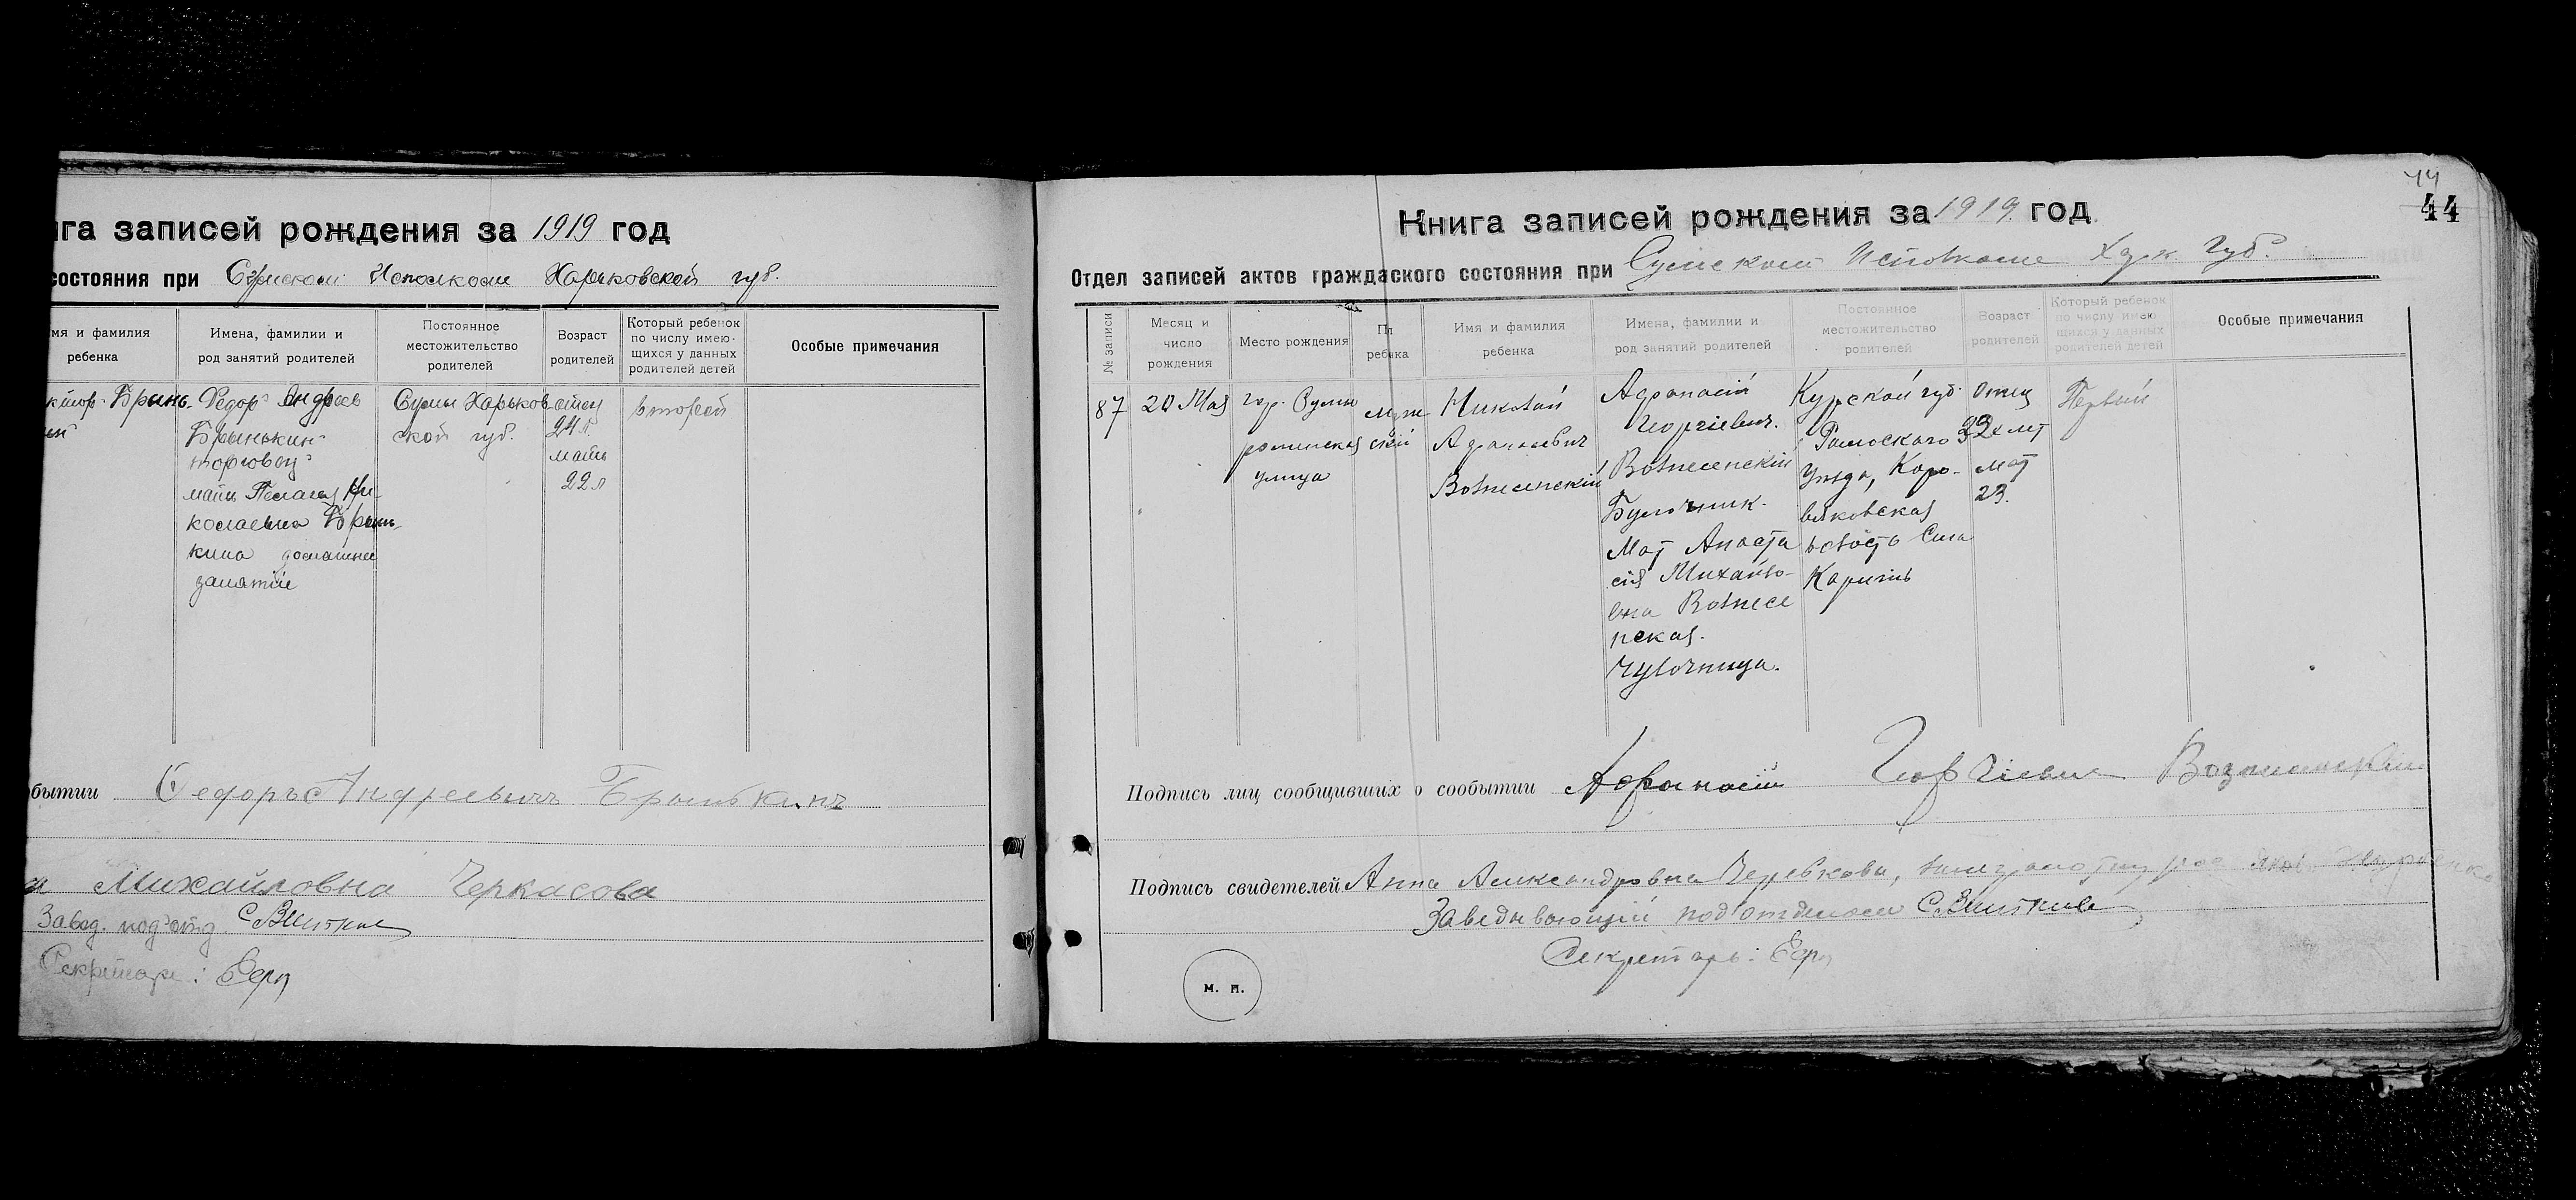 нга записей рождения за 1919 год
состояния при Сумском Исполкоме Харьковской губ.
мя и фамилия
ребенка
Имена, фамилии и
род занятий родителей
Постоянное
местожительство
родителей
Возраст
родителей
Который ребенок
по числу имею-
щихся у данных
родителей детей
Особые примечания
ктор Брынь-
Федор Андреев
Брынькин
торговец
мать Пелагея Ни-
колаевна Брынь-
кина домашнее
занятіе
Сумы Харьков
ской губ.
отец
24 л
мать
22 л
второй
бытии Федоръ Андреевичъ Брынькинъ
Михайловна Черкасова
Завед. подотд.
Секретарь:
44
44
Книга записей рождения за 1919 год
Отдел записей актов граждаского состояния при Сумском Исполкоме Харк Губ.
№ записи
Месяц и
число
рождения
Место рождения
Пол
ребенка
Имя и фамилия
ребенка
Имена, фамилии и
род занятий родителей
Постоянное
местожительство
родителей
Возраст
родителей
Который ребенок
по числу имею-
щихся у данных
родителей детей
Особые примечания
87
20 Мая
гор. Сумы
роменская
улица
муж
ской
Николай
Афанасьевич
Вознесенскій
Афанасій
Георгіевич.
Вознесенскій
Булочник.
Мат Анаста
сія Михайло-
вна Вознесе
нская.
Чулочница.
Курской губ.
Уезда, Коро-
вяковская
волость Села
Коринь
отец
мат
23.
Первый
Подпись лиц сообщивших о сообытии Афанасій Георгіевич Вознесенскій
Подпись свидетелей Анна Александровна
Заведывающій подотделом
Секретарь:
М. П.